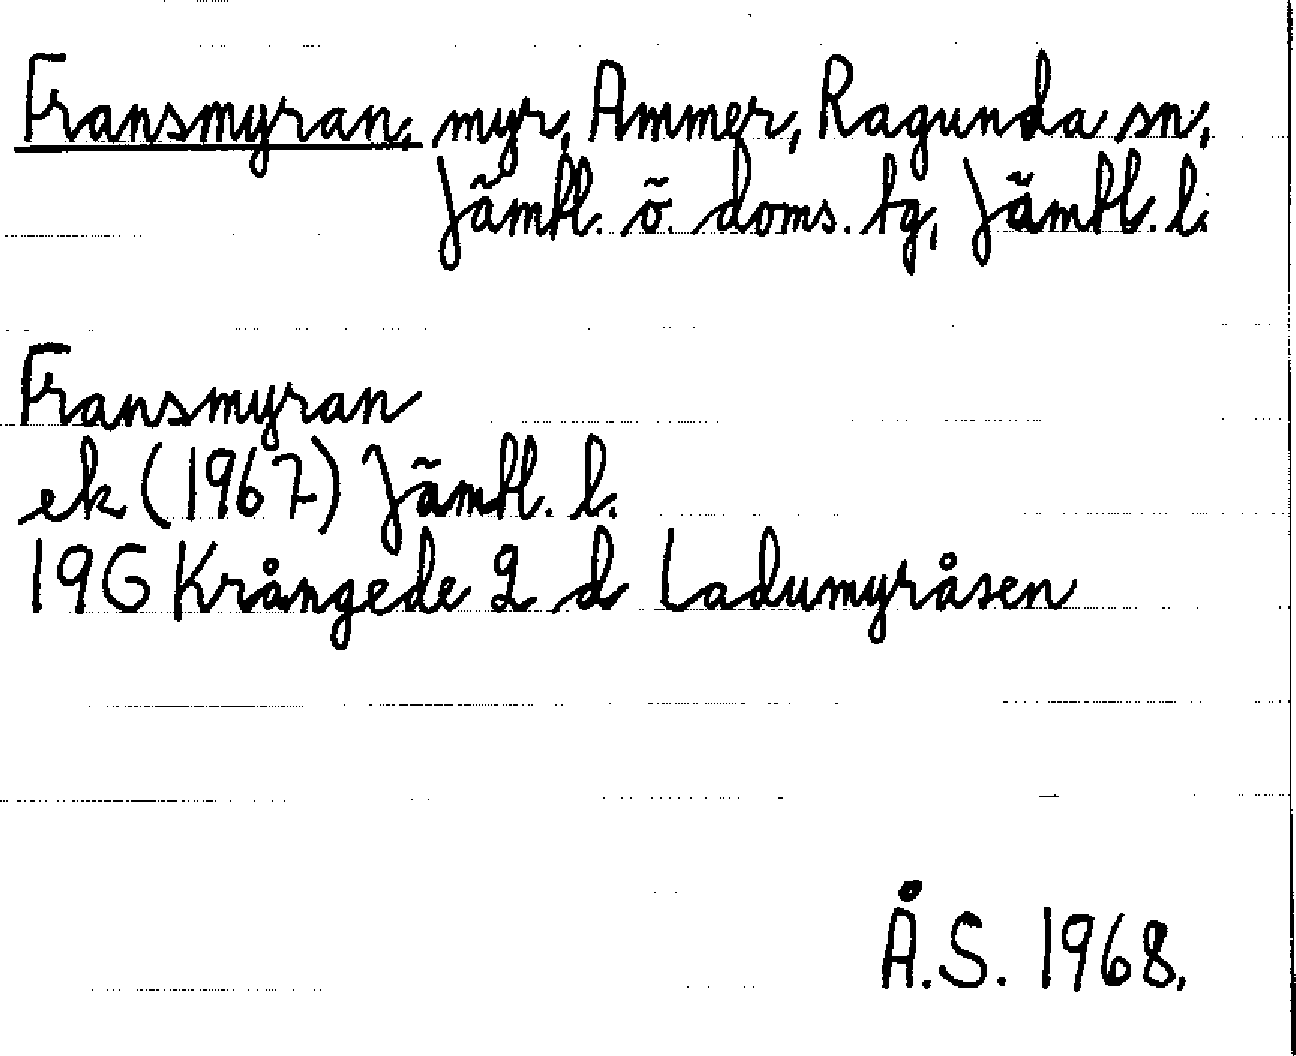 Fransmyran, myr, Ammer, Ragunda sn,
Jämtl. ö. doms. tg, Jämtl. l.
Fransmyran
ek (1967) Jämtl. l.
19G Krångede 2 d Ladumyråsen
Å.S. 1968.